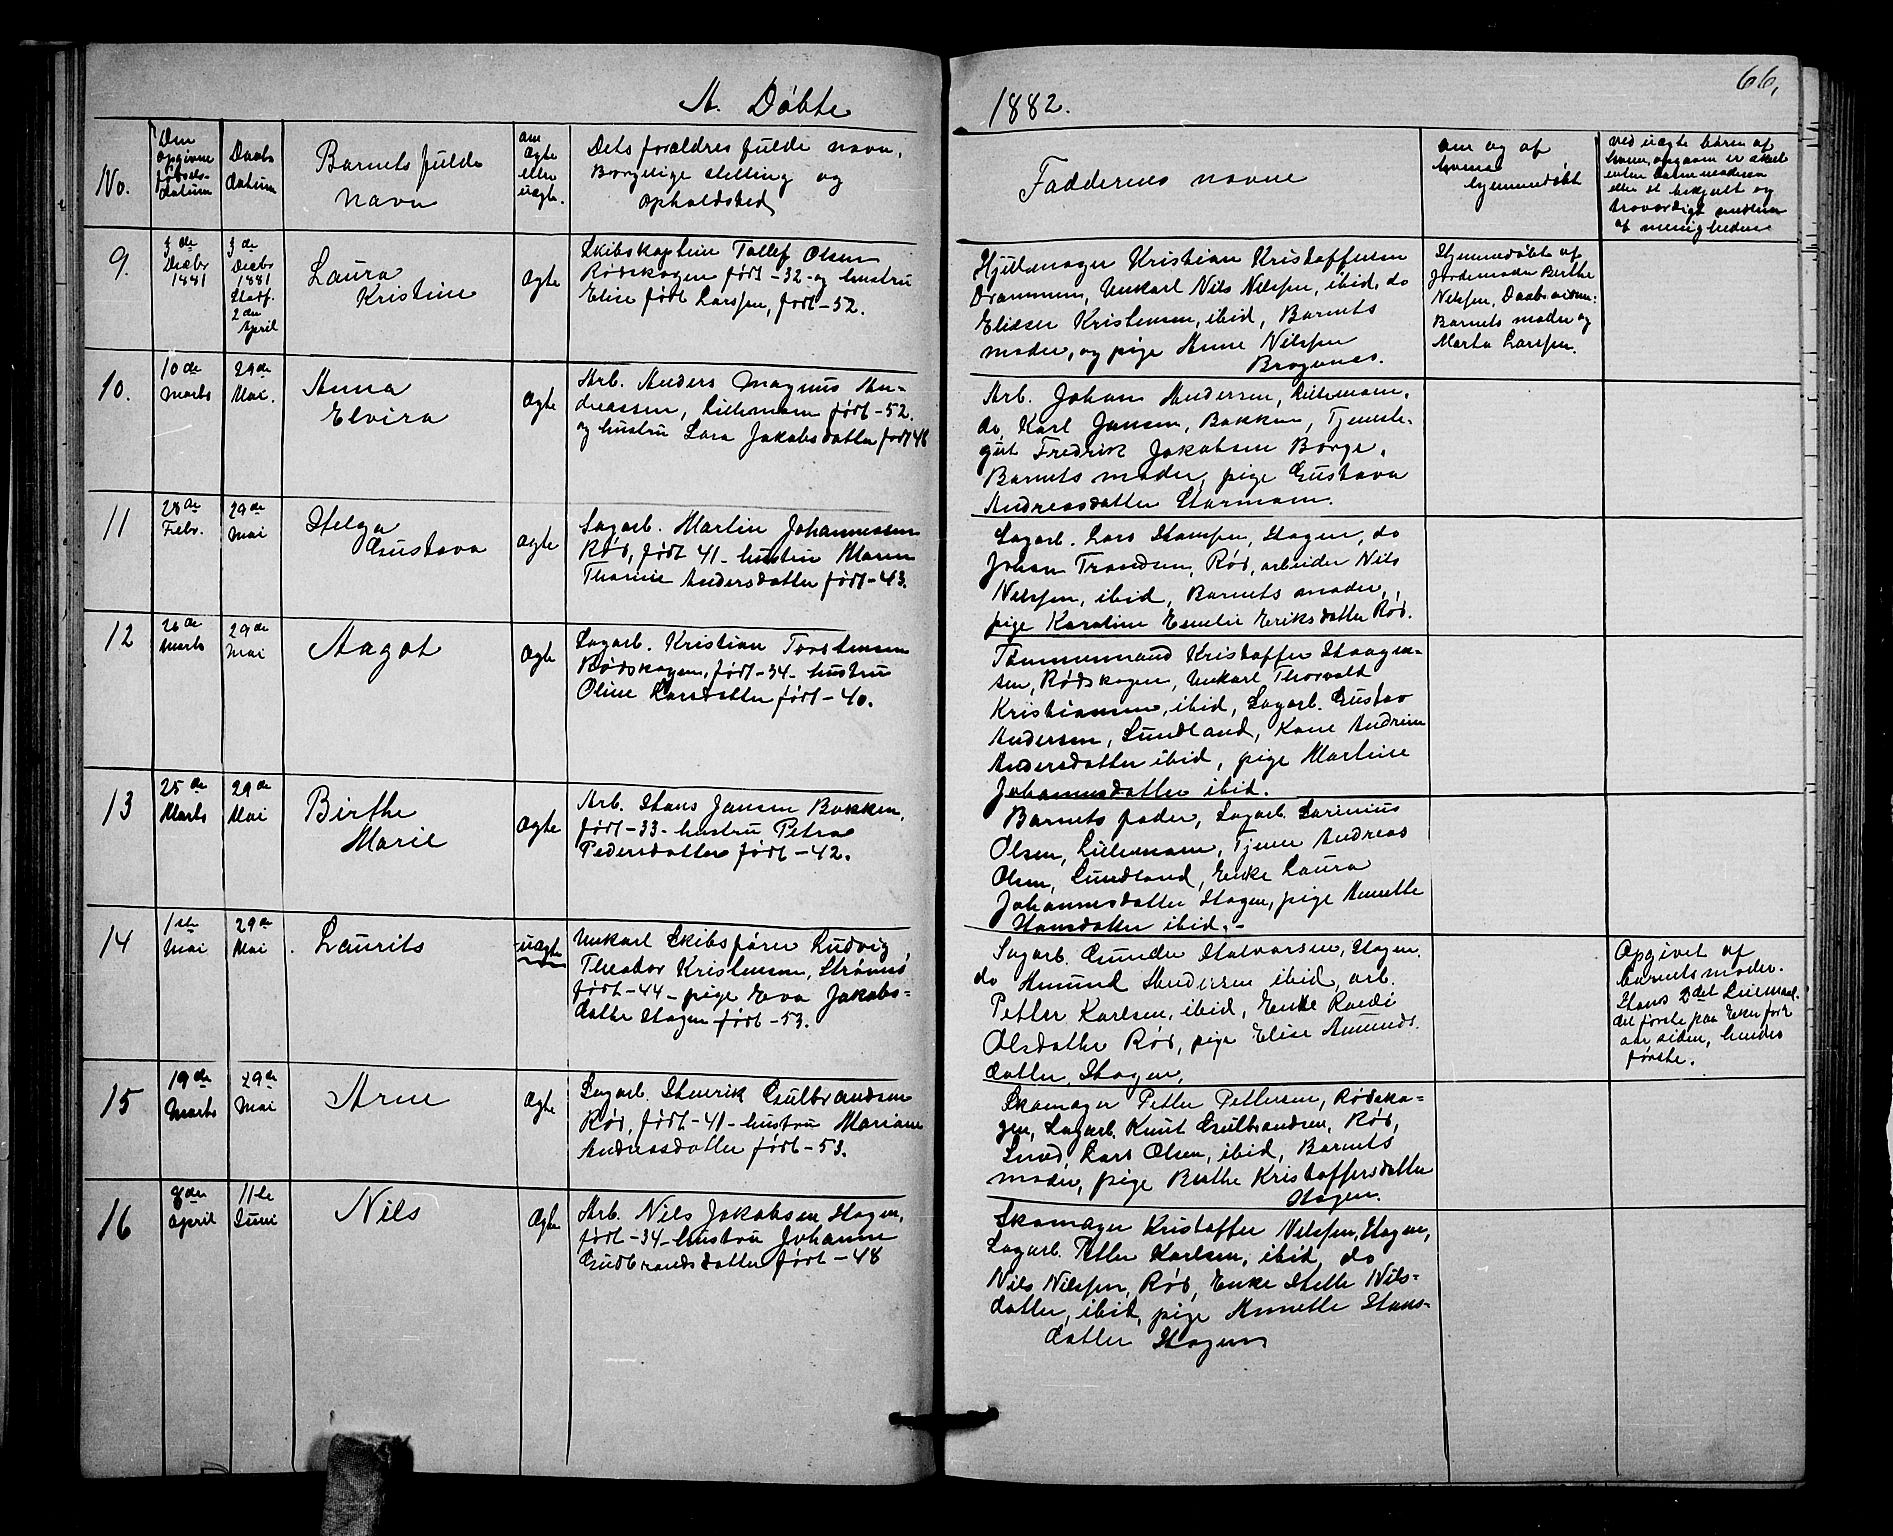 66,
A. Döbte
1882.
No.
Den
opgivne
födsels-
datum
Daabs
datum
Barnets fulde
navn
om
ægte
eller
uægte.
Dets forældres fulde navn,
Borgelige stilling og
opholdsted
Faddernes navne
om og af
hvem
hjemmedöbt
ved uægte börn af
hvem, er
enten
eller et og
troværdigt medlem
af menigheden
9.
3 de
Decbr
1881
3 de
Decbr
1881
Stadf.
2 den
April
Laura
Kristine
ægte
Skibskaptein Tollef Olsen
Rödskogen född -32- og hustru
Elise födt Larssen, födt -52.
Hjulmager Kristian Kristoffersen
Drammen, Unkarl Nils Nilssen, ibid, do
Elidser Kristensen, ibid, Barnets
moder, og pige Anne Nilssen
Bragernes.
Hjemmedöbt af
Jordemoder Berthe
Nilssen, Daabsvidne:
Barnets moder og
Marta Larssen.
10.
10 de
Marts
29 de
Mai.
Anna
Elvira
ægte
Arb. Anders Magnus An-
dreassen, Lillemoen födt -52.
og hustru Lara Jakobsdatter födt 48
Arb. Johan Andersen, Lillemoen,
do, Karl Jansen, Bakken, Tjeneste-
gut Fredrik Jakobsen Borge,
Barnets moder, pige Gustava
Andreasdatter Stormoen.
11
28 de
Febr.
29 de
Mai
Helga
Gustava
ægte
Sagarb. Martin Johannessen
Röd, födt 41 - hustru Maren
Thorine Andersdatter födt -43.
Sagarb. Lars Hanssen, Hagen, do
Johan Trondsen, Röd, arbeider Nils
Nilssen, ibid, Barnets moder,
pige Karoline Emelie Eriksdatter Röd.
12
26 de
Marts
29 de
Mai
Aagot
ægte
Sagarb. Kristian Torstensen
Rödskogen, födt -34- hustru
Oline Larsdatter födt -40.
Tömmermand Kristoffer Haagen-
sen, Rödskogen, Unkarl Thorvald
Kristiansen, ibid, Sagarb. Gustav
Andersen, Lundland, Kone Andrine
Andersdatter ibid, pige Martine
Johannesdatter ibid.
13
25 de
Marts
29 de
Mai
Birthe
Marie
ægte
Arb. Hans Jansen Bakken,
födt -33- hustru Petra
Pedersdatter födt -42.
Barnets fader, Sagarb. Sörinius
Olsen, Lillemoen, Tjener Andreas
Olsen, Lundland, Enke Laura
Johannesdatter Hagen, pige Annette
Hansdatter ibid.-
14
1 ste
Mai
29 de
Mai
Laurits
uægte
Unkarl Skibsförer Ludvig
Theodor Kristensen, Strömsö
födt -44- pige Eva Jakobs-
datter Hagen födt -53.
Sagarb. Gunder Halvorsen, Hagen,
do Amund Andersen ibid, arb.
Petter Karlsen, ibid, Enke Randi
Olsdatter Röd, pige Elise Amunds-
datter, Hagen,
Opgivet af
barnets moder.
Hans 2 det Leiermaal.
det förste paa Eker for 2
aar siden, hendes
förste.
15
19 de
Marts
29 de
Mai
Arne
ægte
Sagarb. Henrik Gulbrandsen
Röd, födt -41- hustru Mariane
Andreasdatter födt -53.
Skomager Petter Pettersen, Rödsko-
gen, Sagarb. Knut Gulbrandsen, Röd,
Smed, Lars Olsen, ibid, Barnets
moder, pige Berthe Kristoffersdatter
Hagen.
16
8 de
april
11te
Juni
Nils
ægte
Arb. Nils Jakobsen Hagen,
födt -34- hustru Johanne
Gudbrandsdatter födt -48
Skomager Kristoffer Nilssen, Hagen,
Sagarb. Petter Karlsen, ibid, do
Nils Nilssen, Röd, Enke Helle Nils-
datter, ibid, pige Annette Hans-
datter Hagen